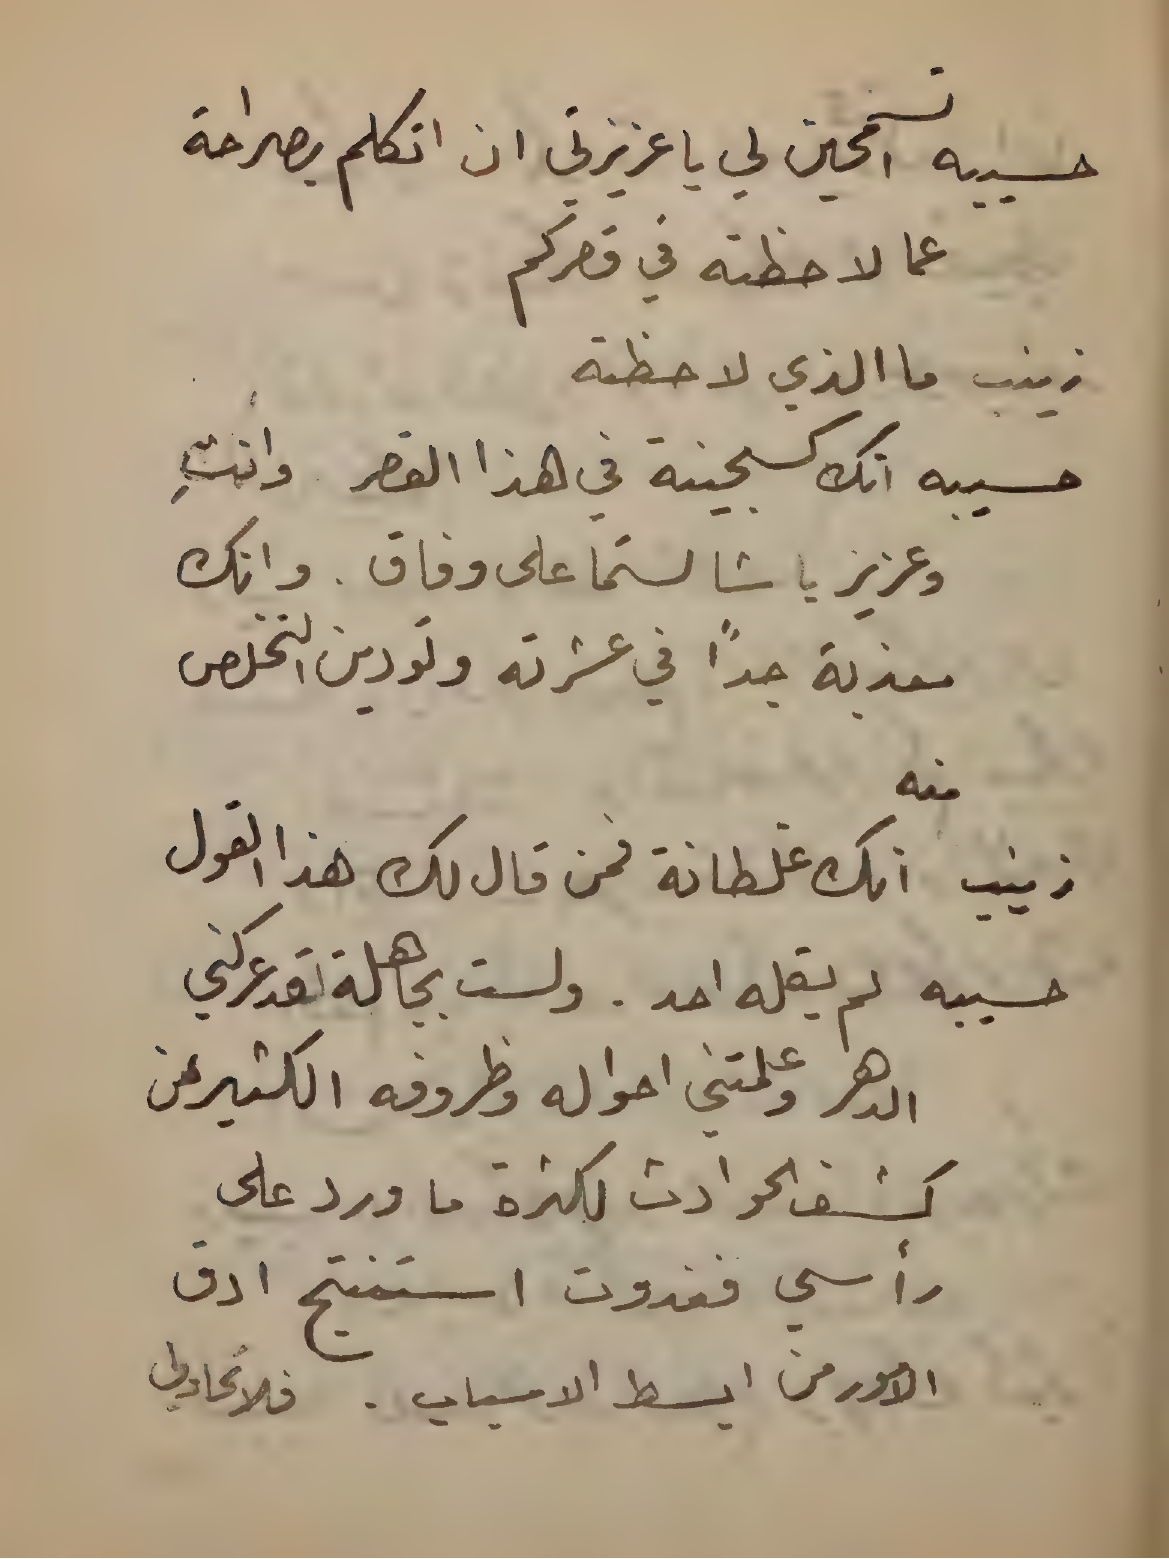 حسيبه اتسمحين لي يا عزيزتي ان اتكلم بصراحة
عما لاحظته في قصركم
زينب ما الذي لاحظته
حسيبه انك كسجينة في هذا القصر . وأنتِ
وعزيز باشا لستما على وفاق . وانك
معذبة جداً في عشرته وتودين التخلص
منه
زينب انك غلطانة فمن قال لك هذا القول
حسيبه لم يقله احد . ولست بجاهلة لقد عركني
الدهر وعلمتني احواله وظروفه الكثير من
كشف الحوادث لكثرة ما ورد على
رأسي فغدوت استنتج ادق
الامور من ابسط الاسباب . فلا تحاولي